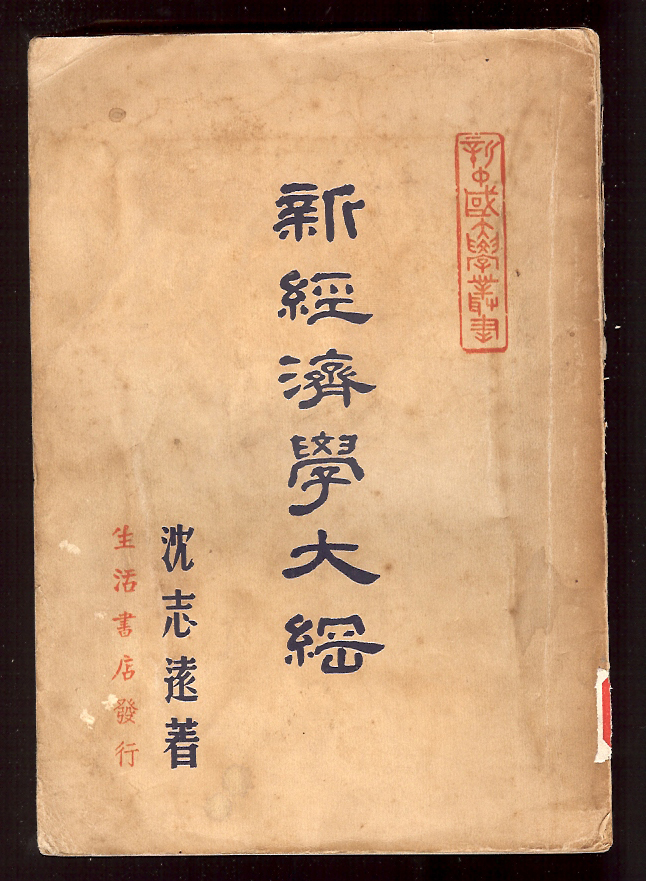 新中國大學叢書
新經濟學大綱
沈志遠著
生活書店發行